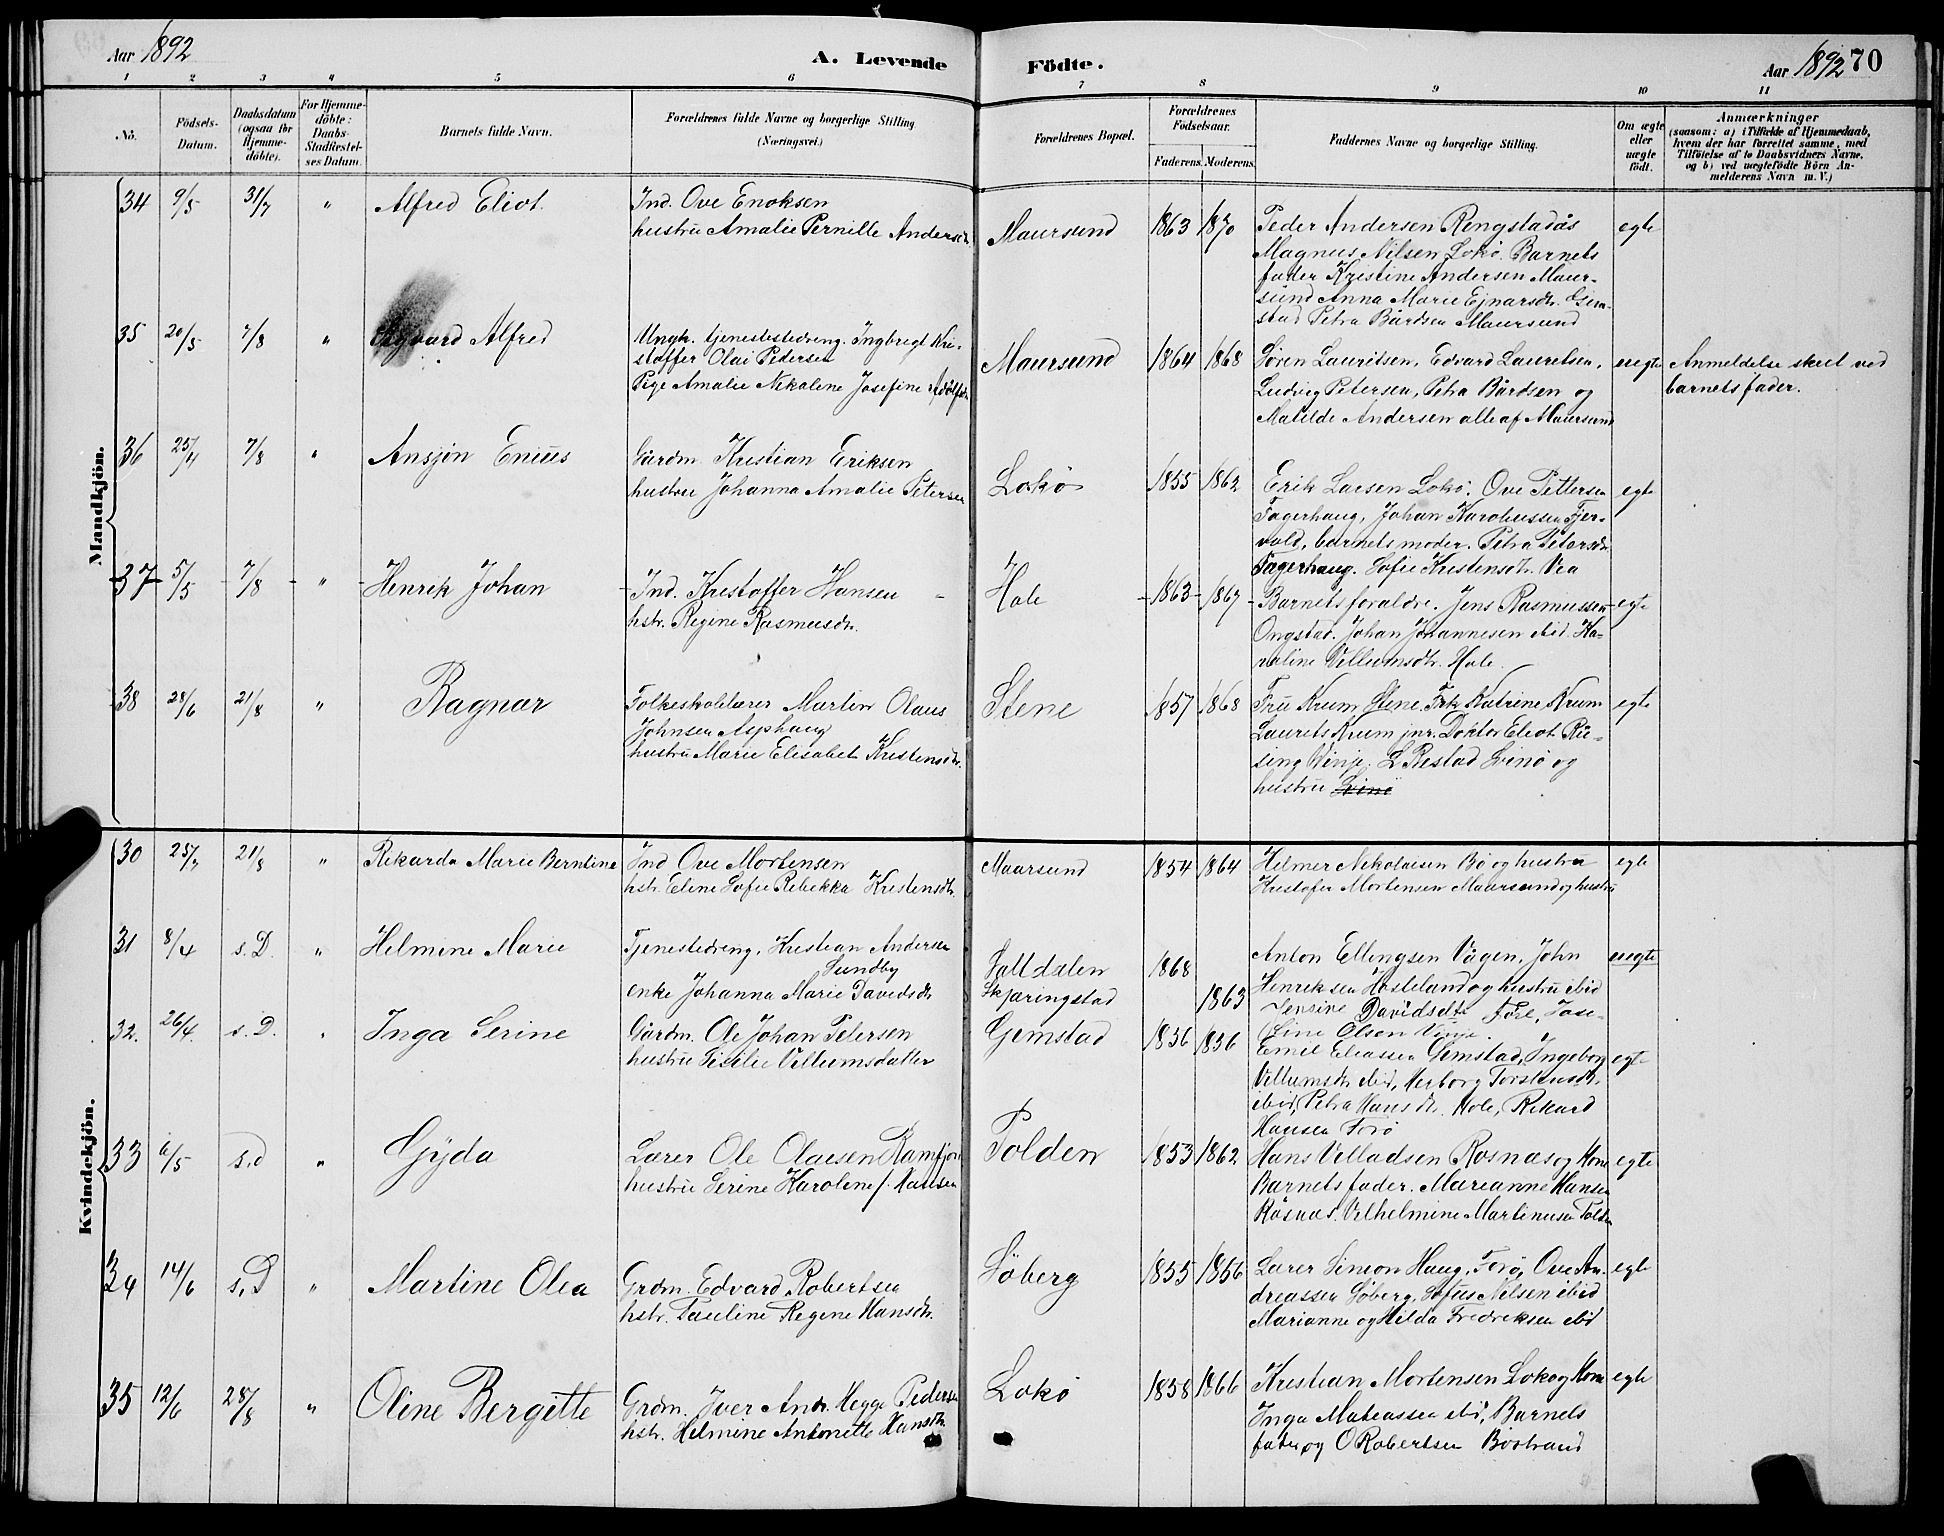 Aar 1892
A. Levende Födte.
Aar 1892 70
1 2 3 4 5 6 7 8 9 10 11
No.
Födsels-Datum.
Daabsdatum (ogsaa for Hjemme-döbte).
For Hjemme-döbte: Daabs-Stadfæstel-ses Datum.
Barnets fulde Navn.
Forældrenes fulde Navne og borgerlige Stilling (Næringsvei.)
Forældrenes Bopæl.
Forældrenes Födselsaar.
Faderens. Moderens.
Faddernes Navne og borgerlige Stilling.
Om ægte eller uægte födt.
Anmærkninger
(saasom: a) i Tilfælde af Hjemmedaab, hvem der har forrettet samme, med Tilföielse af to Daabsvidners Navne, og b) ved uægtefödte Börn An-melderens Navn m. V.)
Mandkjön.
34 9/5 31/7 " Alfred Eliot.
Ind. Ove Enoksen
hustru Amalie Pernille Andersdr.
Maursund 1863 1870
Peder Andersen Rengstadås
Magnus Nilsen Lokø. Barnets
fader Kristine Andersen Maur-
sund Anna Marie Ejnarsdr. Gim-
stad Petra Bårdsen Maursund
egte
35 20/5 7/8 " Alfred
Ungk. tjenestedreng. Ingbregt Kri-
stoffer Olai Pedersen
Pige Amalie Nikoline Josefine Adolfsdr
Maursund 1864 1868
Søren Lauritsen, Edvard Lauritsen,
Ludvig Petersen, Petra Bårdsen og
Matilde Andersen alle af Maursund
uegte
Anmeldelse skeet ved
barnets fader.
36 25/4 7/8 " Ansjøn Enius
Gårdm. Kristian Eriksen
hustru Johanna Amalie Petersen
Lokø 1855 1862
Erik Larsen Lokø. Ove Pettersen
Fagerhaug, Johan Karoliussen Fjer-
vold, barnets moder. Petra Petersdr.
Fagerhaug. Sofie Kristensdr. Vea
egte
37 5/5 7/8 " Henrik Johan
Ind. Kristoffer Hansen
hstr. Regine Rasmusdr.
Hole 1863 1867
Barnets forældre. Jens Rasmussen
Ongstad. Johan Johannesen ibid. Ka-
roline Villumsdr. Hole.
egte
38 28/6 21/8 " Ragnar
Folkeskolelærer Martin Olaus
Johnsen Asphaug
hustru Marie Elisabet Kristensdr.
Stene 1857 1868
Fru Krum Stene. Frk Katrine Krum
Laurits Krum jnr. Doktor Eliot Rü-
sing Vinje. L Restad Svinø og
hustru Svinø
egte
Kvindekjön.
30 25/7 21/8 " Rikarda Marie Berntine
Ind Ove Mortensen
hstr. Eline Sofie Rebekka Kristensdr.
Maursund 1854 1864
Helmer Nikolaisen Bø og hustru
Kristofer Mortensen Maursund og hustru
egte
31 8/4 s. D. " Helmine Marie
Tjenestedreng, Kristian Andersen
Sundby
enke Johanna Marie Davidsdr
Saltdalen 1868
Skjæringstad 1863
Anton Ellingsen Vågen, John
Henriksen Hæsteland og hustru ibid
Jensine Davidsdtr Føre, Jose-
fine Olson Vinje.
uegte
32. 26/4. s. D. " Inga Serine
Gårdm. Ole Johan Petersen
hustru Sisilie Villumsdatter
Gimstad 1856 1856
Emil Eliassen Gimstad, Ingeborg
Villumsdr ibid, Verborg Torstensdr.
ibid, Petra Hansdr. Hole, Rikard
Hansen Forø
egte
33 6/5 s. d " Gÿda
Lærer Ole Olaisen Ramfjord
hustru Serine Karoline f. Hansen
Tolden 1853 1862
Hans Villadsen Rosnæs og Kone
Barnets fader. Marianne Hansen
Råsnæs. Vilhelmine Martinusen Tolden
egte
34 14/6 s. D " Martine Olea
Grdm. Edvard Robertsen
hstr. Pauline Regine Hansdr.
Søberg 1855 1866
Lærer Simon Haug, Forø, Ove An-
dreassen Søberg, Sofus Nilsen ibid
Marianne og Hilda Fredriksen ibid
egte
35 12/6 28/8 " Oline Bergitte
Grdm. Iver Andr. Hegge Pedersen
hstr. Helmine Antonette Hansdr.
Lokø 1858 1866
Kristian Mortensen Lokø og Kone
Inga Mateassen ibid, Barnets
fader og O Robertsen Bøstrand
egte